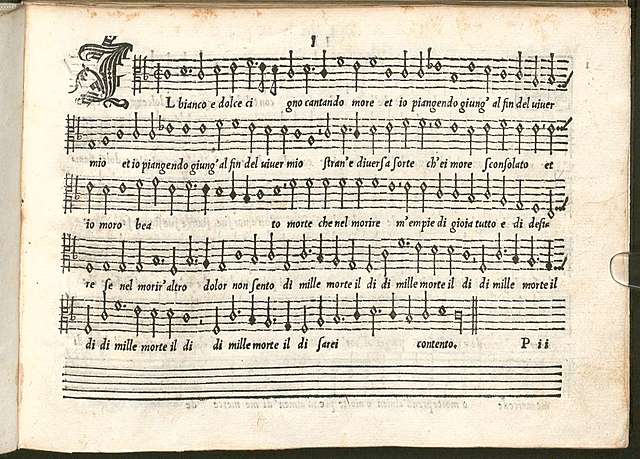 1
IL bianco e dolce ci gno cantando more et io piangendo giung' al fin del uiuer
mio et io piangendo giung' al fin del uiuer mio stran'e diuersa sorte ch'ei more sconsolato et
io moro bea to morte che nel morire m'empie di gioia tutto e di desi-
re se nel morir'altro dolor non sento di mille morte il di di mille morte il di di mille morte il
di di mille morte il di di mille morte il di sarei contento. P ii